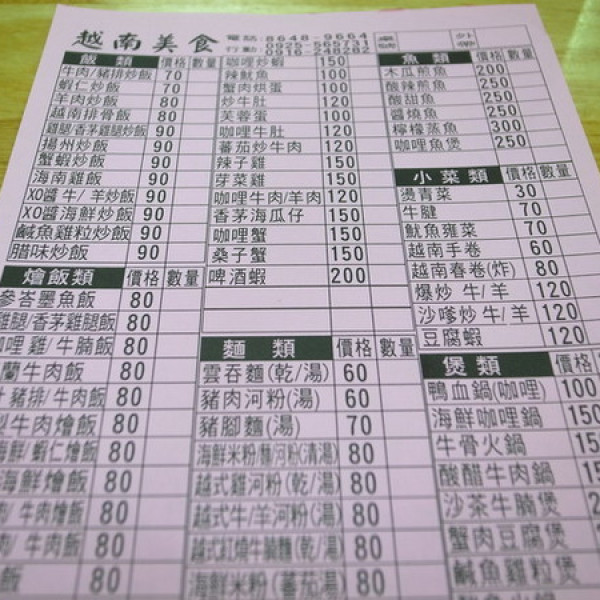 越南美食 電話:8648-9664
行動:0925-565731
0916-248282
桌號
外帶
飯 類 價格 數量
牛肉/豬排炒飯 70
蝦仁炒飯 70
羊肉炒飯 80
越南排骨飯 80
雞腿/香茅雞腿炒飯 90
揚州炒飯 90
蟹蝦炒飯 90
海南雞飯 90
XO醬 牛/ 羊炒飯 90
XO醬海鮮炒飯 90
鹹魚雞粒炒飯 90
腊味炒飯 90
燴飯類 價格 數量
參峇墨魚飯 80
雞腿/香茅雞腿飯 80
咖哩 雞/ 牛腩飯 80
蘭牛肉飯 80
牛肉飯 80
海鮮/ 蝦仁燴飯 80
海鮮燴飯 80
牛肉燴飯 80
牛肉飯 80
飯 80
咖哩炒蝦 150
辣魷魚 100
蟹肉烘蛋 100
炒牛肚 120
芙蓉蛋 100
咖哩牛肚 120
蕃茄炒牛肉 120
辣子雞 150
芽菜雞 150
咖哩牛肉/羊肉 120
香茅海瓜仔 150
咖哩蟹 150
桑子蟹 150
啤酒蝦 200
麵 類 價格 數量
雲吞麵(乾/湯) 60
豬肉河粉(湯) 60
豬腳麵(湯) 70
海鮮米粉/麵/河粉(清湯) 80
越式雞河粉(乾/湯) 80
越式牛/羊河粉(湯) 80
越式紅燒牛腩麵(乾/湯) 80
海鮮米粉(蕃茄湯) 80
魚 類 價格 數量
木瓜煎魚 200
酸辣煎魚 250
酸甜魚 250
醬燒魚 250
檸檬蒸魚 300
咖哩魚煲 250
小菜類 價格 數量
燙青菜 30
牛腱 70
魷魚蕹菜 70
越南手卷 60
越南春卷(炸) 80
爆炒 牛/ 羊 120
沙嗲炒 牛/ 羊 120
豆腐蝦 120
煲 類 價格
鴨血鍋(咖哩) 100
海鮮咖哩鍋 150
牛骨火鍋
酸醋牛肉鍋
沙茶牛腩煲
蟹肉豆腐煲
鹹魚雞粒煲